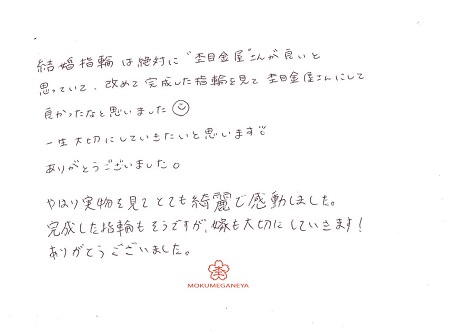 結婚指輪は絶対に"杢目金屋"さんが良いと
思っていて、改めて完成した指輪を見て杢目金屋さんにして
良かったなと思いました
一生大切にしていきたいと思います
ありがとうございました。
やはり実物を見てとても綺麗で感動しました。
完成した指輪もそうですが、嫁も大切にしていきます!
ありがとうございました。
MOKUMEGANEYA